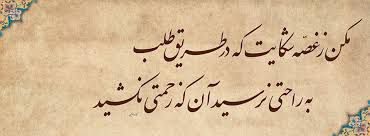 مکن ز غصّه شکایت که در طریق طلب
به راحتی نرسید آن که زحمتی نکشید